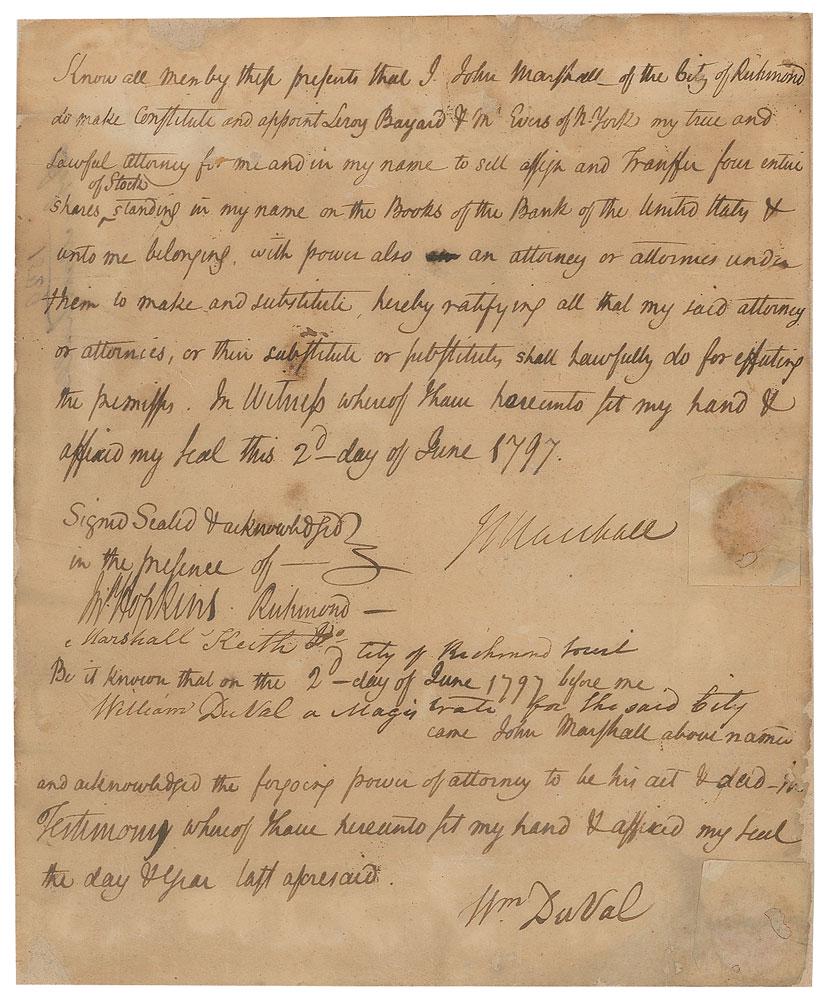 Know all men by these presents that I. John Marshall of the City of Richmond
do make Constitute and appoint Leroy Bayard & Mc Evers of N. York my true and
Lawful attorney for me and in my name to sell assign and Transfer four entire
of Stock
shares standing in my name on the Books of the Bank of the United States &
unto me belonging, with power also an attorney or attornies under
them to make and substitute, hereby ratifying all that my said attorney
or attornies, or their substitute or substitutes shall Lawfully do for effecting
the premisses. In Witness whereof I have hereunto set my hand &
affixed my Seal this 2d day of June 1797.
Signed Sealed & acknowledged
in the presence of —
J Marshall
Jn Hopkins. Richmond —
Marshall Keith Do
City of Richmond
Be it known that on the 2d day of June 1797 before me
William DuVal a Magistrate for the said City
came John Marshall above named
and acknowledged the forgoing power of attorney to be his act & deed - in
Testimony whereof I have hereunto set my hand & affixed my Seal
the day & Year last aforesaid.
Wm DuVal